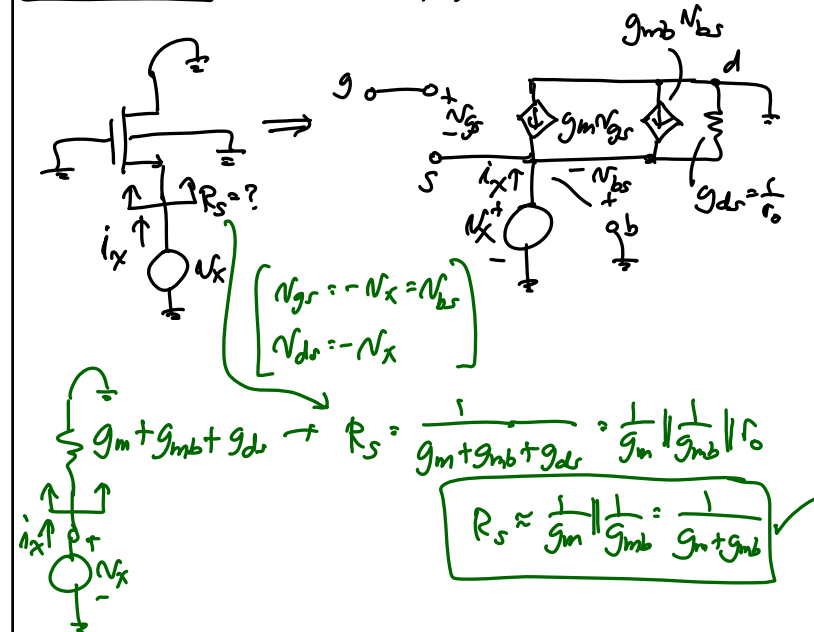 g_mb v_bs
d
g
+
v_gs
-
g_m v_gs
R_s = ?
s
i_x
- v_bs +
g_ds = 1/r_o
i_x
v_x
v_x
+
-
b
v_gs = -v_x = v_bs
v_ds = -v_x
g_m + g_mb + g_ds → R_s = 1/(g_m + g_mb + g_ds) = 1/g_m || 1/g_mb || r_o
R_s ≈ 1/g_m || 1/g_mb = 1/(g_m + g_mb) ✓
i_x
+
v_x
-